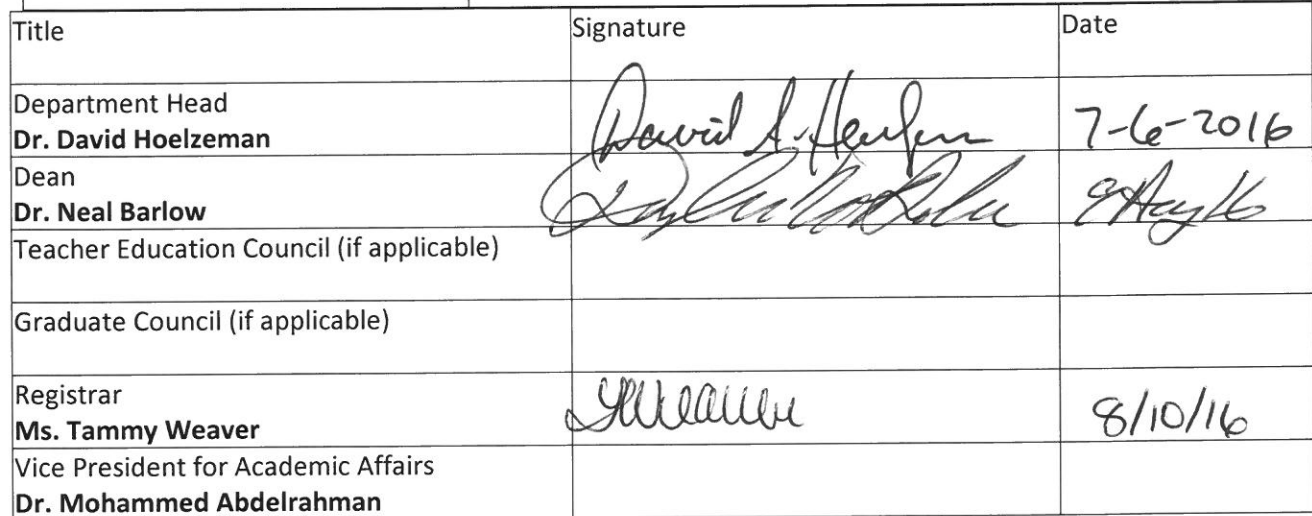 Title Signature Date
Department Head
Dr. David Hoelzeman David 7-6-2016
Dean
Dr. Neal Barlow
Teacher Education Council (if applicable)
Graduate Council (if applicable)
Registrar
Ms. Tammy Weaver TWeaver 8/10/16
Vice President for Academic Affairs
Dr. Mohammed Abdelrahman